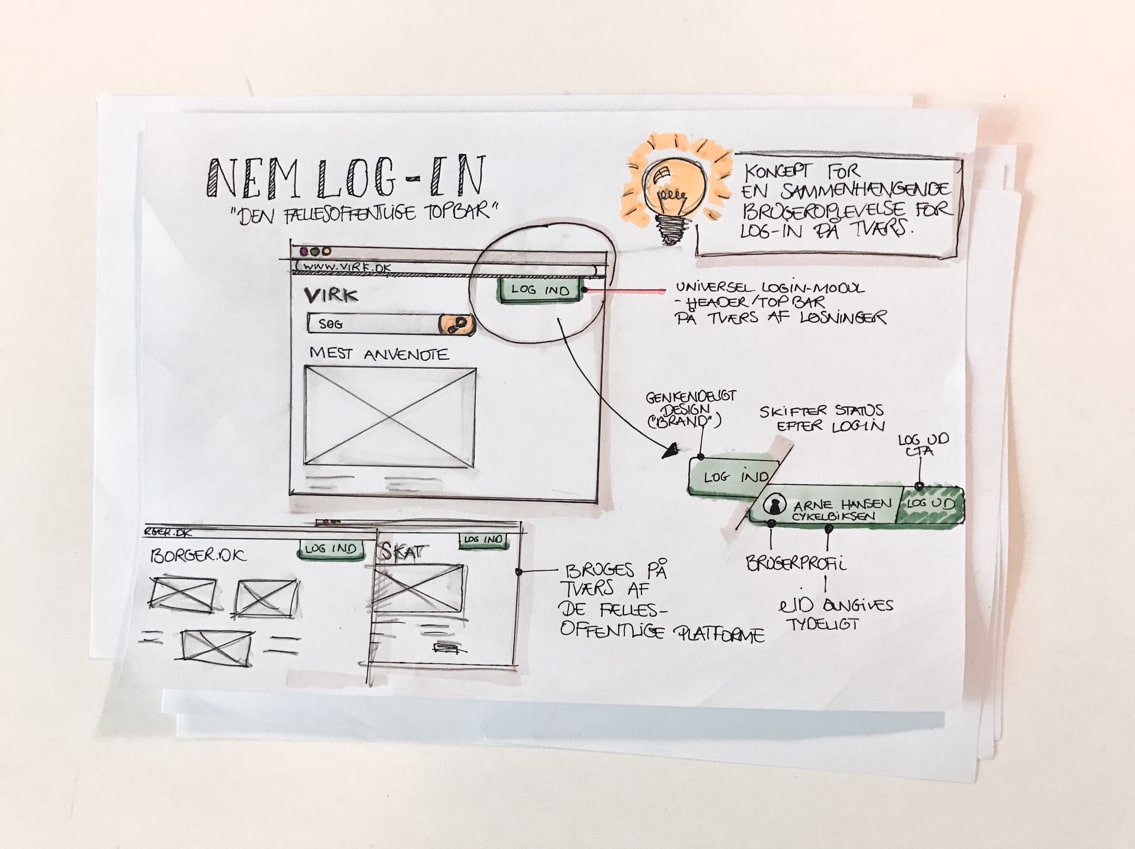 NEM LOG-IN
"DEN FÆLLESOFFENTLIGE TOPBAR"
KONCEPT FOR
EN SAMMENHÆNGENDE
BRUGEROPLEVELSE FOR
LOG-IN PÅ TVÆRS.
WWW.VIRK.DK
VIRK
LOG IND
SØG
MEST ANVENDTE
UNIVERSEL LOGIN-MODUL
- HEADER/TOPBAR
PÅ TVÆRS AF LØSNINGER
GENKENDELIGT
DESIGN
("BRAND")
SKIFTER STATUS
EFTER LOGIN
LOG UD
CTA
LOG IND
ARNE HANSEN
CYKELBIKSEN
LOG UD
BRUGERPROFIL
eID ANGIVES
TYDELIGT
RGER.DK
BORGER.DK
LOG IND
SKAT
LOG IND
BRUGES PÅ
TVÆRS AF
DE FÆLLES-
OFFENTLIGE PLATFORME